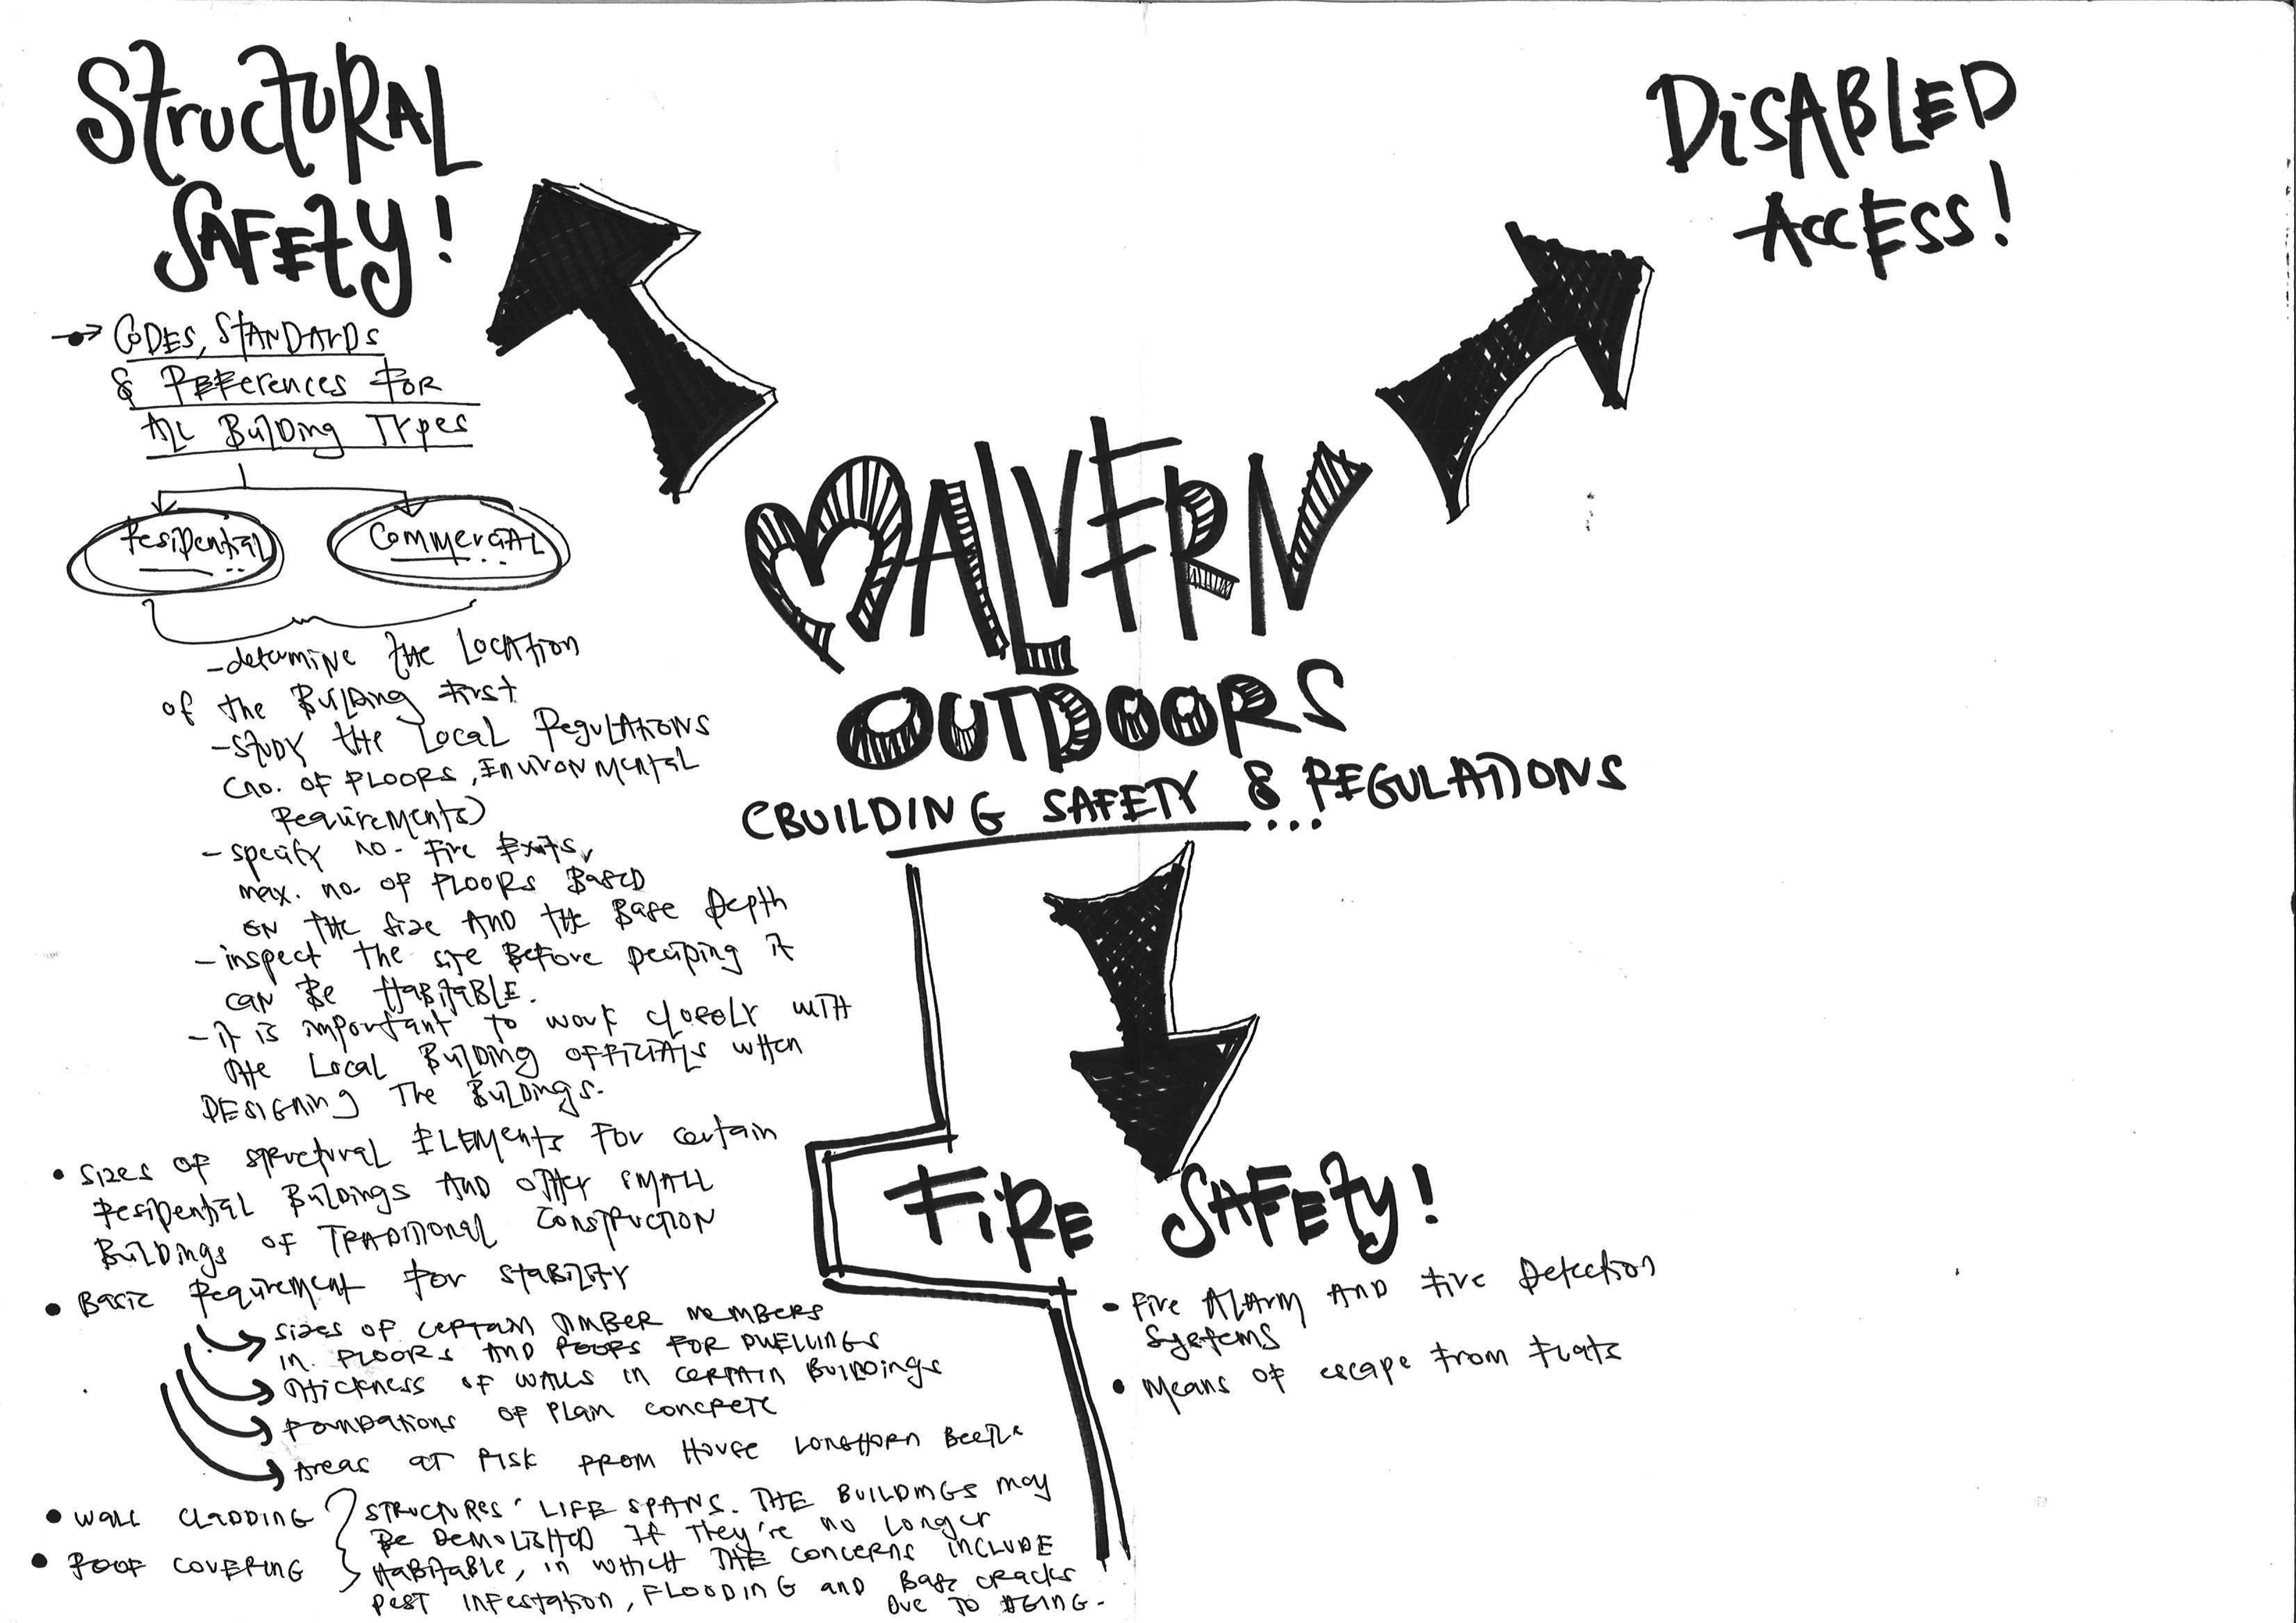 Structural
Safety!
→ Codes, Standards
& References for
All Building Types
Residential
Commercial
- determine the Location
of the Building first
- study the Local Regulations
(no. of floors, Environmental
Requirements)
- specify no. fire exits,
max. no. of floors Based
on the size and the Base Depth
- inspect the site Before deciding it
can be Habitable.
- it is important to work closely with
the Local Building Officials when
Designing the Buildings.
• Sizes of structural Elements for certain
Residential Buildings and other small
Buildings of Traditional Construction
• Basic Requirement for Stability
→ sizes of certain timber members
in floors and roofs for dwellings
→ thickness of walls in certain buildings
→ foundations of plain concrete
→ Areas at risk from House Longhorn Beetle
• Wall Cladding
• Roof Covering
Structures' life spans. The buildings may
be demolished if they're no longer
Habitable, in which the concerns include
pest infestation, flooding and base cracks
due to ageing.
Malvern
Outdoors
(Building Safety & Regulations
...
Disabled
Access!
Fire Safety!
• Fire Alarm and Fire Detection
Systems
• Means of escape from flats